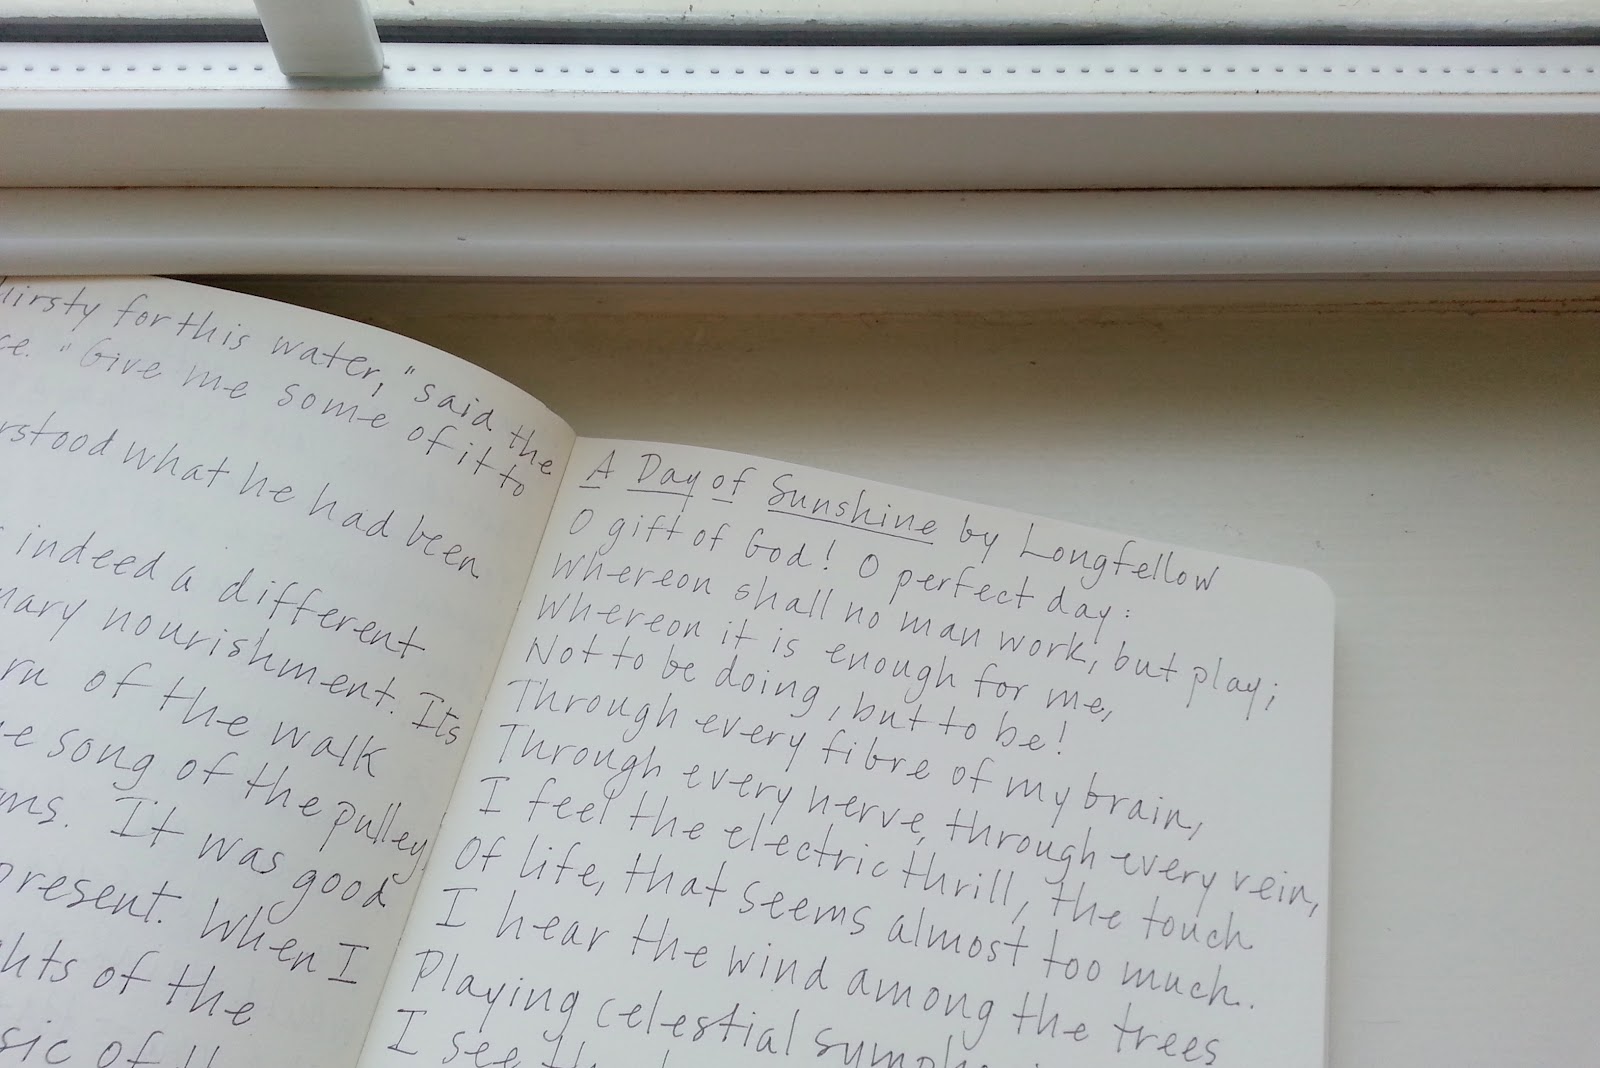 hirsty for this water," said the
ce. "Give me some of it to
rstood what he had been
indeed a different
nary nourishment. Its
rn of the walk
e song of the pulley,
ms. It was good
present. When I
hts of the
sic of th
A Day of Sunshine by Longfellow
O gift of God! O perfect day:
Whereon shall no man work, but play;
Whereon it is enough for me,
Not to be doing, but to be!
Through every fibre of my brain,
Through every nerve, through every vein,
I feel the electric thrill, the touch
Of life, that seems almost too much.
I hear the wind among the trees
Playing celestial symph
I see th